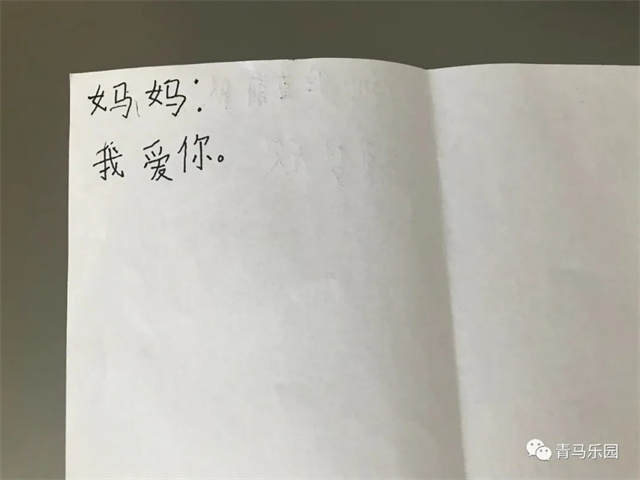 妈妈：
我爱你。
青马乐园